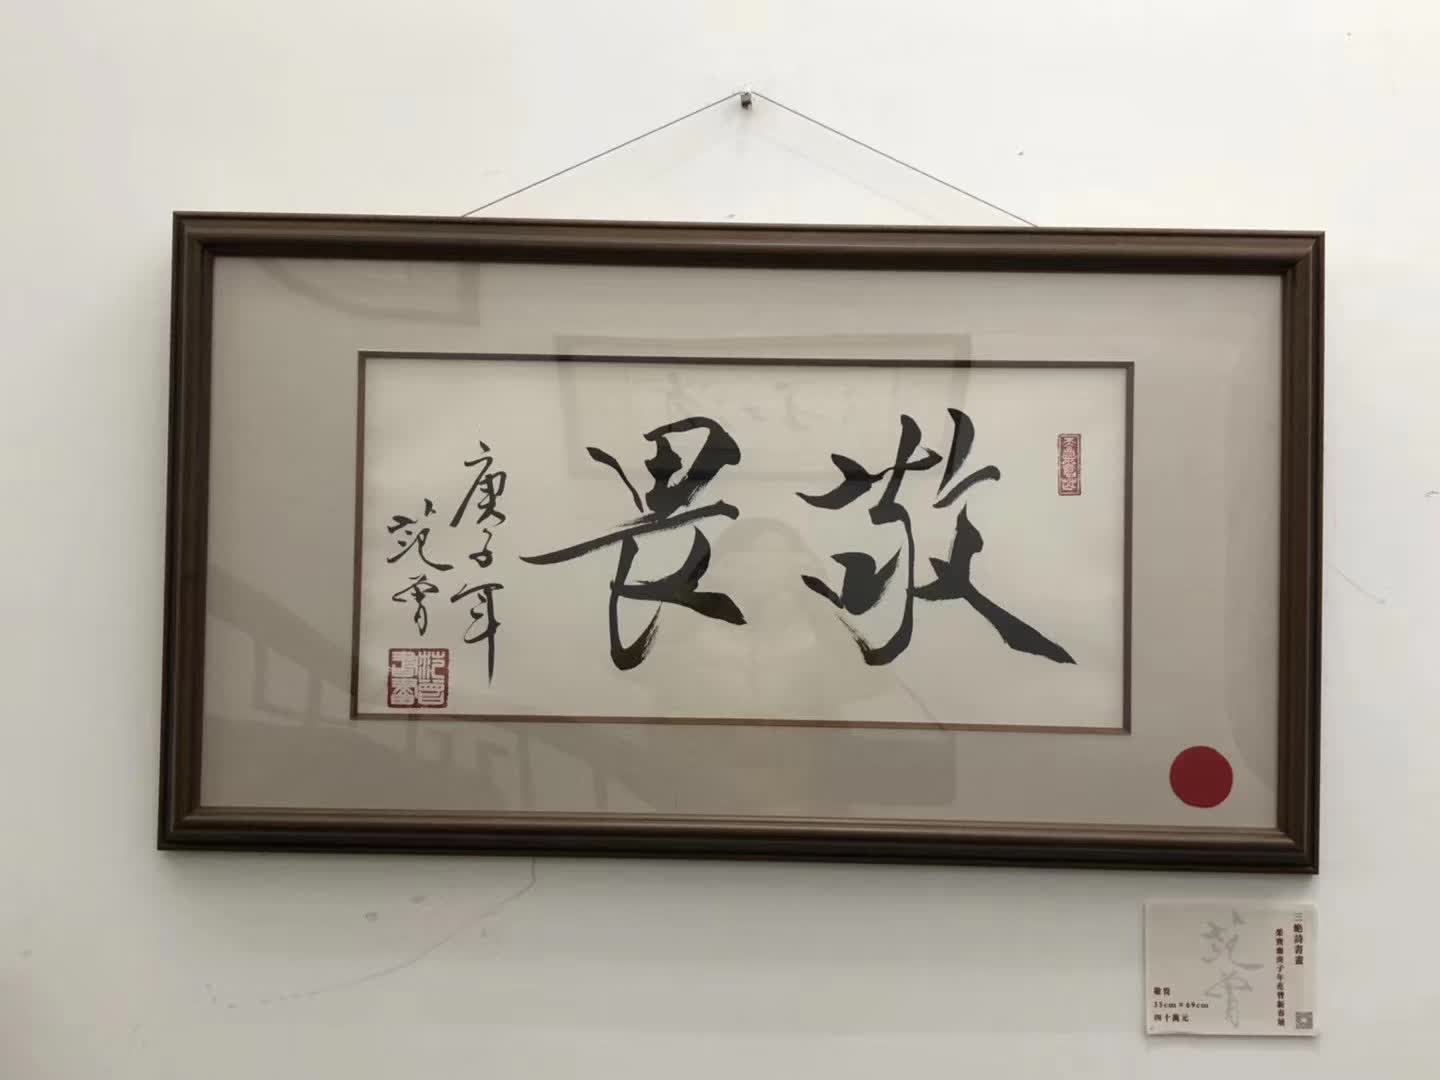 敬畏
庚子年
范曾
范曾
書畫
三絶詩書畫
榮寶齋庚子年范曾新春展
范曾
敬畏
35cm×69cm
四十萬元